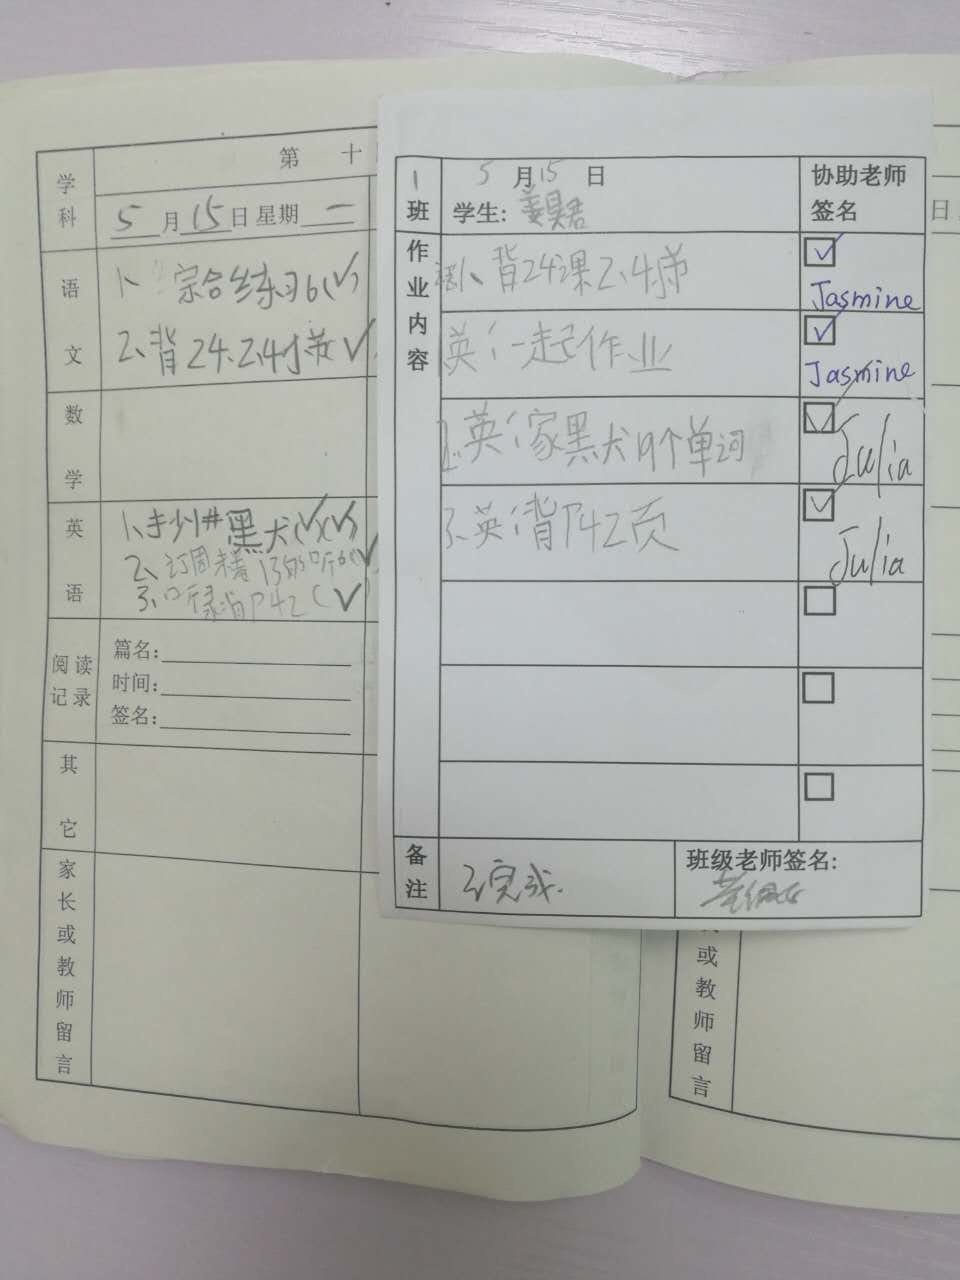 学科
第 十
5月15日 星期一
语文
1、综合练习6(✓)
2、背24、2、4小节✓
数学
英语
1、 黑犬(✓)(✓)
2、订周末卷
3、听录背P42(✓)
阅读记录
篇名:
时间:
签名:
其它
家长或教师留言
1班
5月15日
学生:
协助老师签名
作业内容
1、背24课2、4节
☑ Jasmine
英:一起作业
☑ Jasmine
2.英:家黑犬19个单词
☑ Julia
3、英:背P42页
☑ Julia
备注
已完成.
班级老师签名:
日
或教师留言